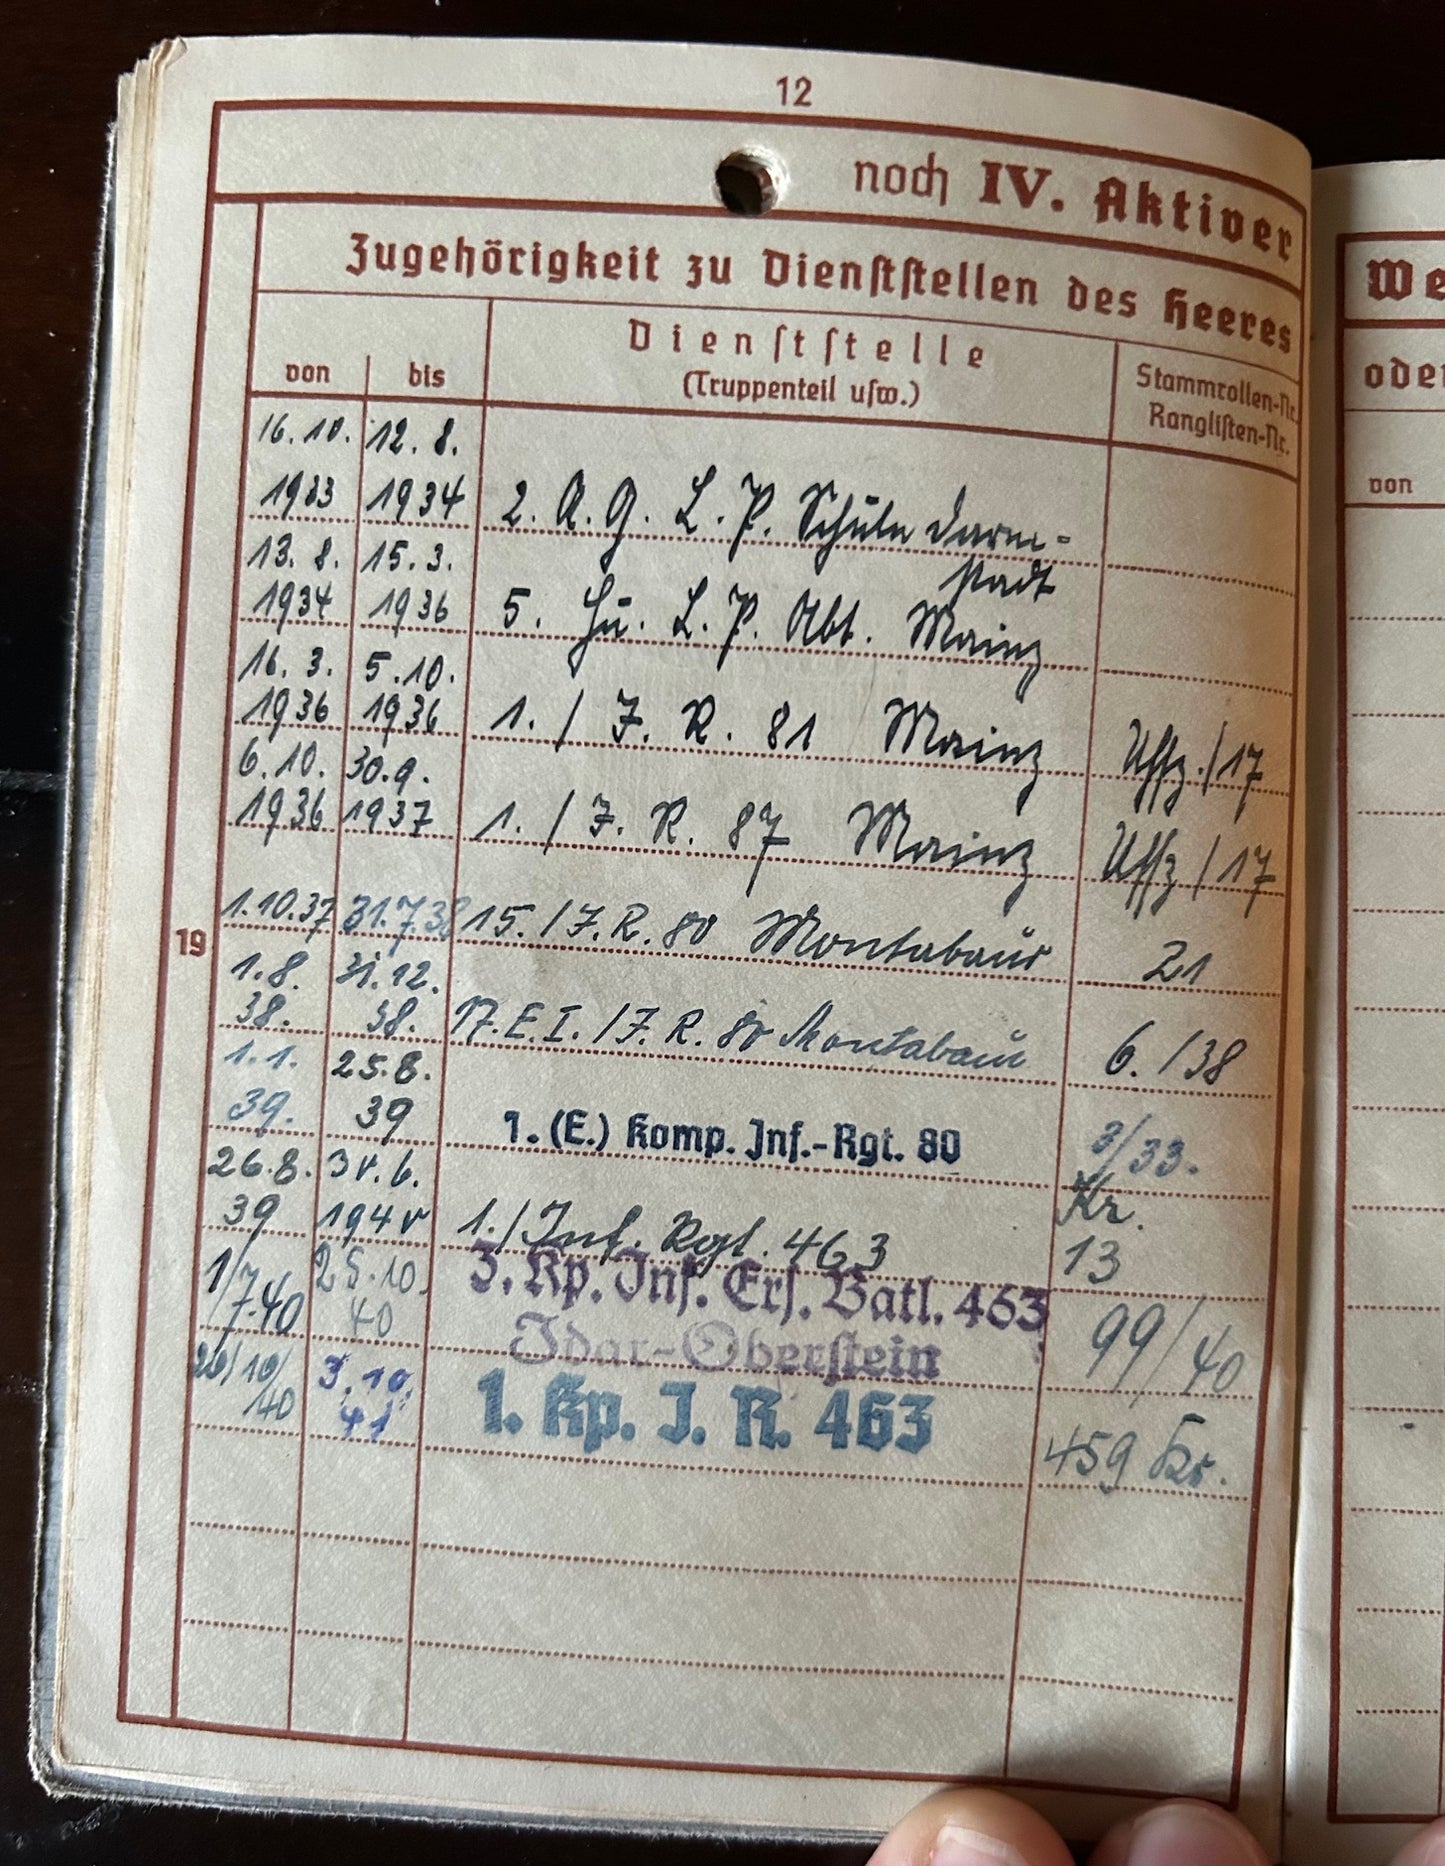 12
noch IV. Aktiver
Zugehörigkeit zu Dienststellen des Heeres
Dienststelle
von bis (Truppenteil usw.) Stammrollen-Nr.
Ranglisten-Nr.
16.10. 12.8.
1933 1934 2. A. G. L. P. Schule Darm-
stadt
13. 8. 15. 3.
1934 1936 5. Hu. L. P. Abt. Mainz
16. 3. 5.10.
1936 1936 1. / J. R. 81 Mainz Uffz./17
6.10. 30.9.
1936 1937 1. / J. R. 87 Mainz Uffz/17
19
1.10.37 31.7.38 15. / J. R. 80 Montabaur 21
1.8. 31.12.
38. 38. 17. E. I. / J. R. 80 Montabaur 6./38
1.1. 25.8.
39. 39 1. (E.) Komp. Inf.-Rgt. 80 3/33.
26.8. 30.6. Kr.
39 1940 1./Inf. Rgt. 463 13
1/7.40 25.10. 3. Kp. Inf. Ers. Batl. 463
40 Idar-Oberstein 99/40
26/10/ 3.10.
40 41 1. Kp. J. R. 463 459 Kr.
We
oder
von